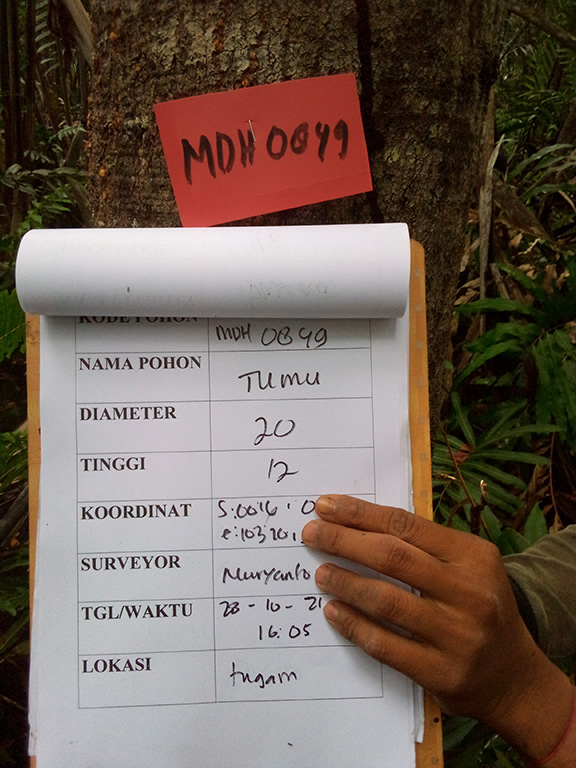 MDH 0849
KODE POHON
MDH 0849
NAMA POHON
TUMU
DIAMETER
20
TINGGI
12
KOORDINAT
S:0016.0
e:10320.
SURVEYOR
Muryanto
TGL/WAKTU
28-10-21
16:05
LOKASI
tugam